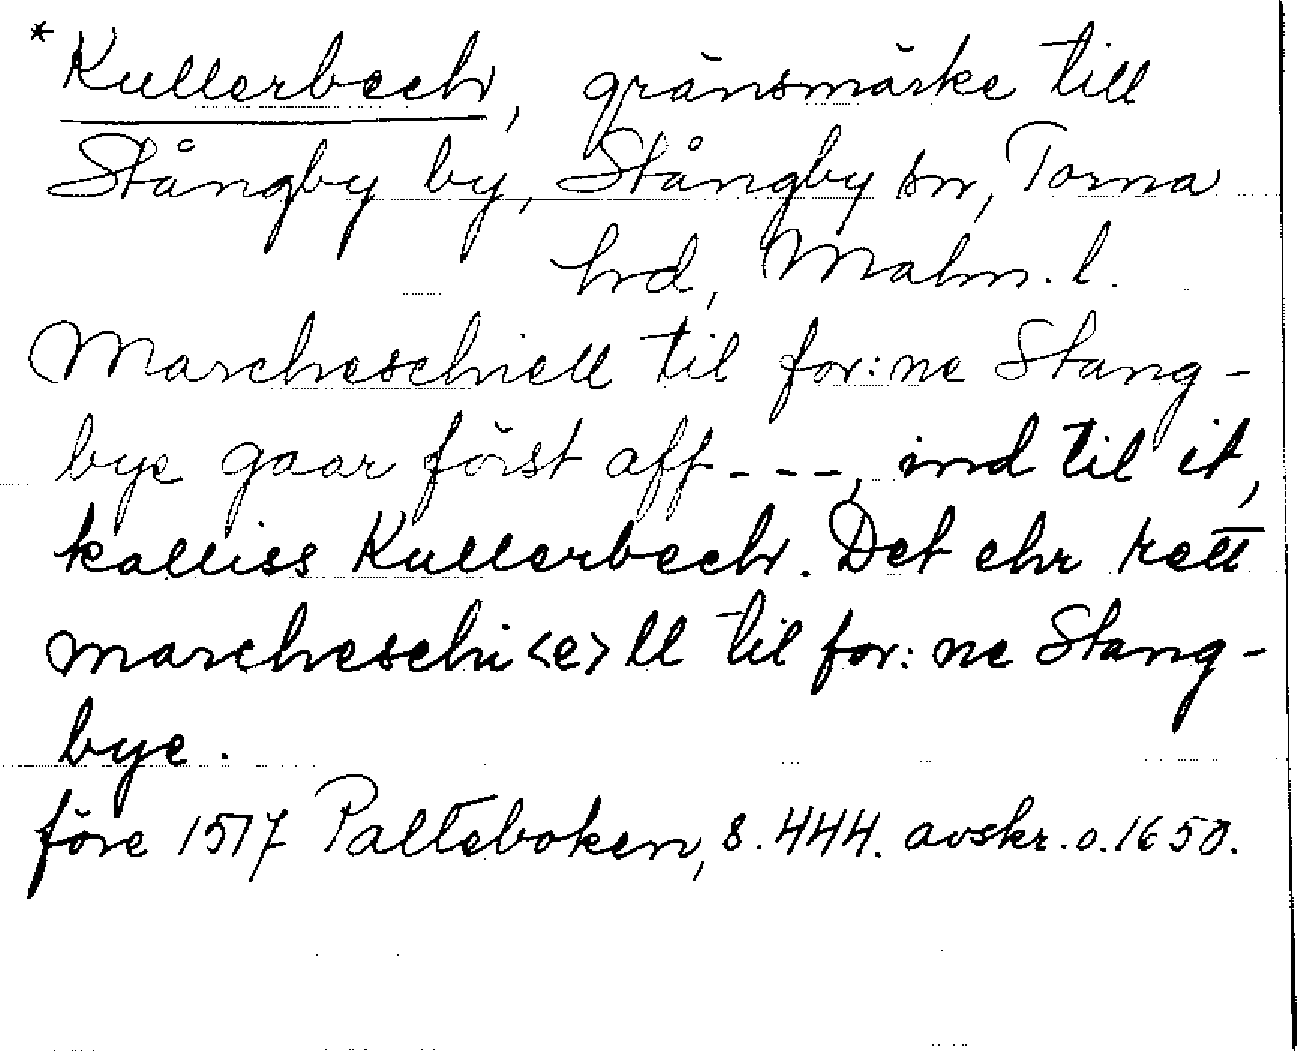 *Kullerbech, gränsmärke till
Stångby by, Stångby sn, Torna
hrd, Malm. l.
Marcheschiell til for:ne Stang-
bye gaar först aff ---, ind til it,
kalliss Kullerbech. Det ehr rett
marcheschi<e>ll til for:ne Stang-
bye.
före 1517 Palteboken, s. 444. avskr. o. 1650.